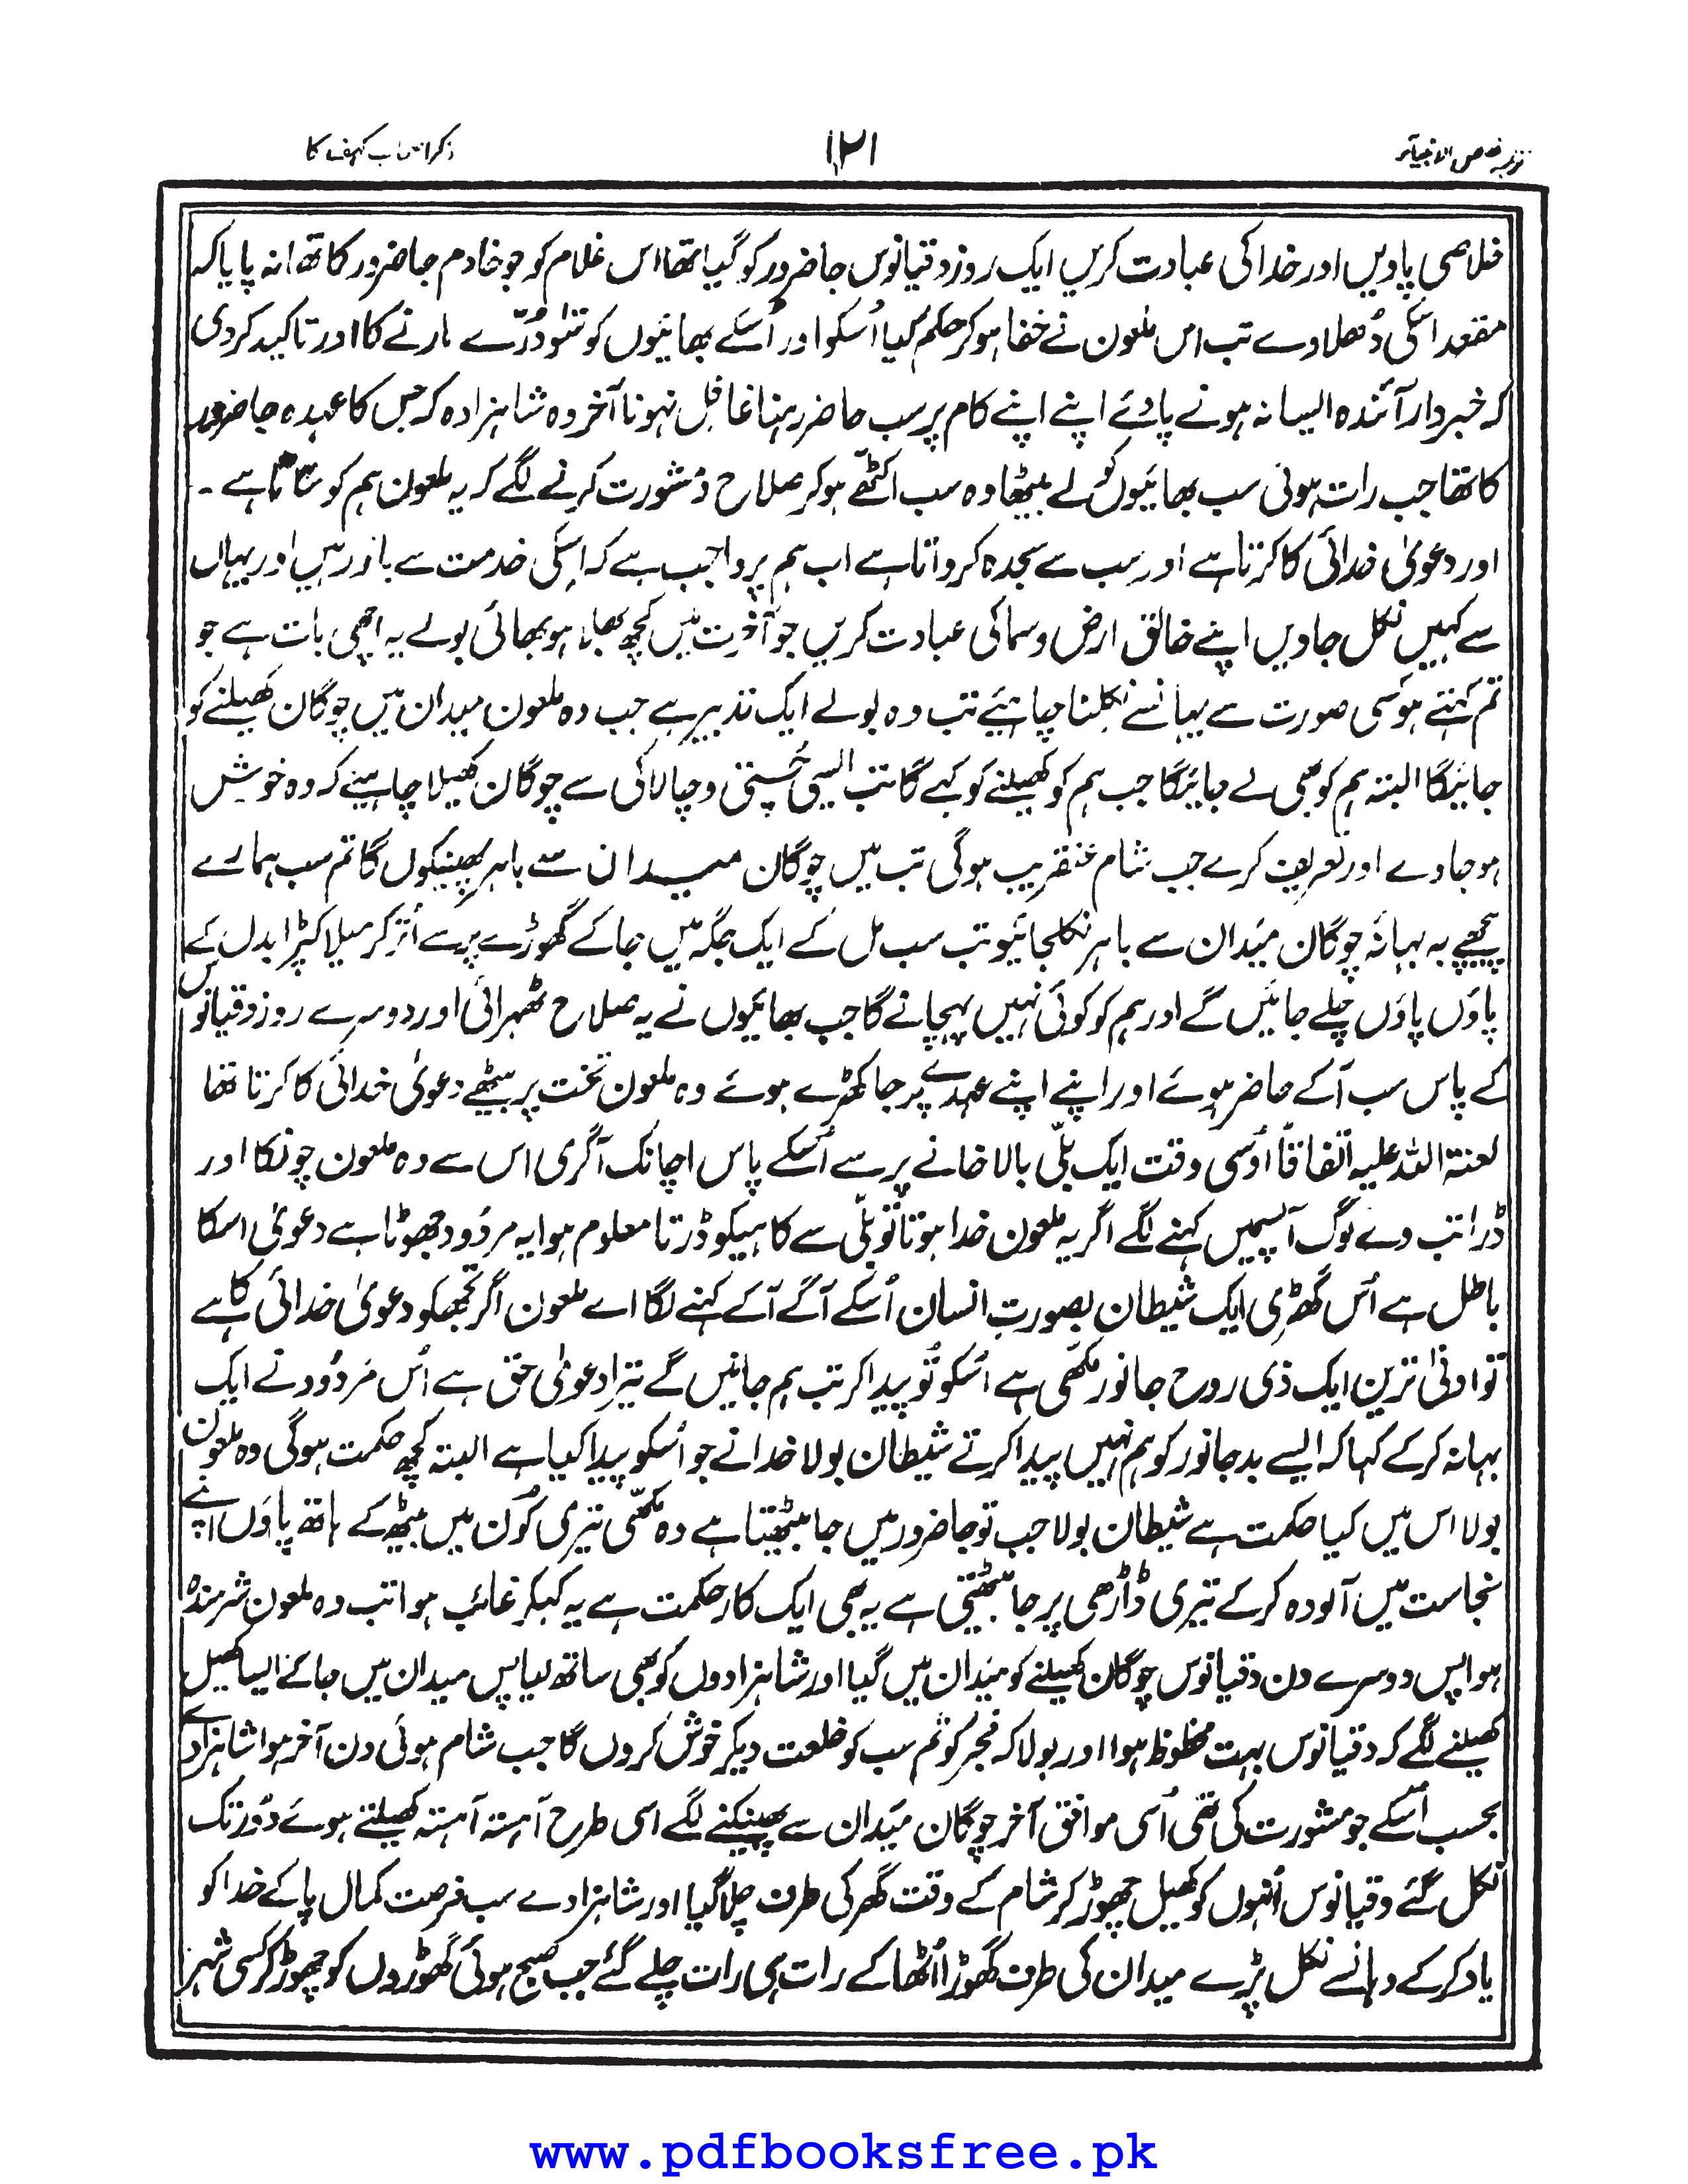 ترجمہ قصص الانبیاء
۱۲۱
ذکر اصحاب کہف کا
خلاصی پاویں اور خدا کی عبادت کریں ایک روز دقیانوس جاضرور کو گیا تھا اس غلام کو جو خادم جاضرور کا تھا نہ پایا کہ
مقعد اسکی دُھلاوے تب اس ملعون نے خفا ہوکر حکم کیا اُسکو اور اُسکے بھائیوں کو سَو دُرّے مارنے کا اور تاکید کردی
کہ خبردار آئندہ ایسا نہ ہونے پاوے اپنے اپنے کام پر سب حاضر رہنا غافل نہونا آخر وہ شاہزادہ کہ جس کا عہدہ جاضرور
کا تھا جب رات ہوئی سب بھائیوں کو لے بیٹھا وہ سب اکٹھے ہوکر صلاح و مشورت کرنے لگے کہ یہ ملعون ہم کو ستاتا ہے ۔
اور دعویٰ خدائی کا کرتا ہے اور سب سے سجدہ کرواتا ہے اب ہم پر واجب ہے کہ اسکی خدمت سے باز رہیں اور یہاں
سے کہیں نکل جاویں اپنے خالق ارض و سما کی عبادت کریں جو آخرت میں کچھ بھلا ہو بھائی بولے یہ اچھی بات ہے جو
تم کہتے ہو کسی صورت سے یہانسے نکلنا چاہئیے تب وہ بولے ایک تدبیر ہے جب وہ ملعون میدان میں چوگان کھیلنے کو
جائیگا البتہ ہم کو بھی لے جائیگا جب ہم کو کھیلنے کو کہے گا تب ایسی چُستی و چالاکی سے چوگان کھیلا چاہیئے کہ وہ خوش
ہوجاوے اور تعریف کرے جب شام عنقریب ہوگی تب میں چوگان میدان سے باہر پھینکوں گا تم سب ہمارے
پیچھے بہ بہانہ چوگان میدان سے باہر نکلجائیو تب سب مل کے ایک جگہ میں جاکے گھوڑے پر سے اُترکر میلا کپڑا بدل کے
پاؤں پاؤں چلے جائیں گے اور ہم کو کوئی نہیں پہچانے گا جب بھائیوں نے یہ صلاح ٹھہرائی اور دوسرے روز دقیانوس
کے پاس سب آکے حاضر ہوئے اور اپنے اپنے عہدے پر جا کھڑے ہوئے وہ ملعون تخت پر بیٹھے دعویٰ خدائی کا کرتا تھا
لعنۃ اللہ علیہ اتفاقاً اوسی وقت ایک بلّی بالاخانے پر سے اُسکے پاس اچانک آگری اس سے وہ ملعون چونکا اور
ڈرا تب وے لوگ آپسمیں کہنے لگے اگر یہ ملعون خدا ہوتا تو بلّی سے کاہیکو ڈرتا معلوم ہوا یہ مردود جھوٹا ہے دعویٰ اسکا
باطل ہے اُس گھڑی ایک شیطان بصورت انسان اُسکے آگے آکے کہنے لگا اے ملعون اگر تجھکو دعویٰ خدائی کا ہے
تو ادنیٰ ترین ایک ذی روح جانور مکھی ہے اُسکو تُو پیدا کر تب ہم جانیں گے تیرا دعویٰ حق ہے اُس مردُود نے ایک
بہانہ کرکے کہا کہ ایسے بدجانور کو ہم نہیں پیدا کرتے شیطان بولا خدا نے جو اُسکو پیدا کیا ہے البتہ کچھ حکمت ہوگی وہ ملعون
بولا اس میں کیا حکمت ہے شیطان بولا جب تو جاضرور میں جا بیٹھتا ہے وہ مکھّی تیری کُون میں بیٹھ کے ہاتھ پاؤں اپنے
نجاست میں آلودہ کرکے تیری ڈاڑھی پر جا بیٹھتی ہے یہ بھی ایک کار حکمت ہے یہ کہکر غائب ہوا تب وہ ملعون شرمندہ
ہوا پس دوسرے دن دقیانوس چوگان کھیلنے کو میدان میں گیا اور شاہزادوں کو بھی ساتھ لیا پس میدان میں جاکے ایسا کھیل
کھیلنے لگے کہ دقیانوس بہت محظوظ ہوا اور بولا کہ فجر کو تم سب کو خلعت دیکر خوش کروں گا جب شام ہوئی دن آخر ہوا شاہزادے
بحسب اُسکے جو مشورت کی تھی اُسی موافق آخر چوگان میدان سے پھینکنے لگے اسی طرح آہستہ آہستہ کھیلتے ہوئے دُور تک
نکل گئے دقیانوس اُنہوں کو کھیل چھوڑ کر شام کے وقت گھر کی طرف چلا گیا اور شاہزادے سب فرصت کمال پاکے خدا کو
یاد کرکے وہانسے نکل پڑے میدان کی طرف گھوڑا اُٹھا کے رات ہی رات چلے گئے جب صبح ہوئی گھوڑوں کو چھوڑ کر کسی شہر
www.pdfbooksfree.pk